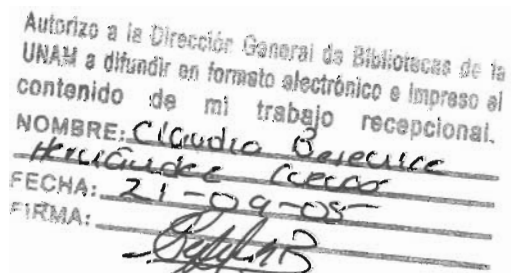 Autorizo a la Dirección General de Bibliotecas de la
UNAM a difundir en formato electrónico e impreso el
contenido de mi trabajo recepcional.
NOMBRE: Claudia Berenice
Hernández
FECHA: 21-09-05
FIRMA: